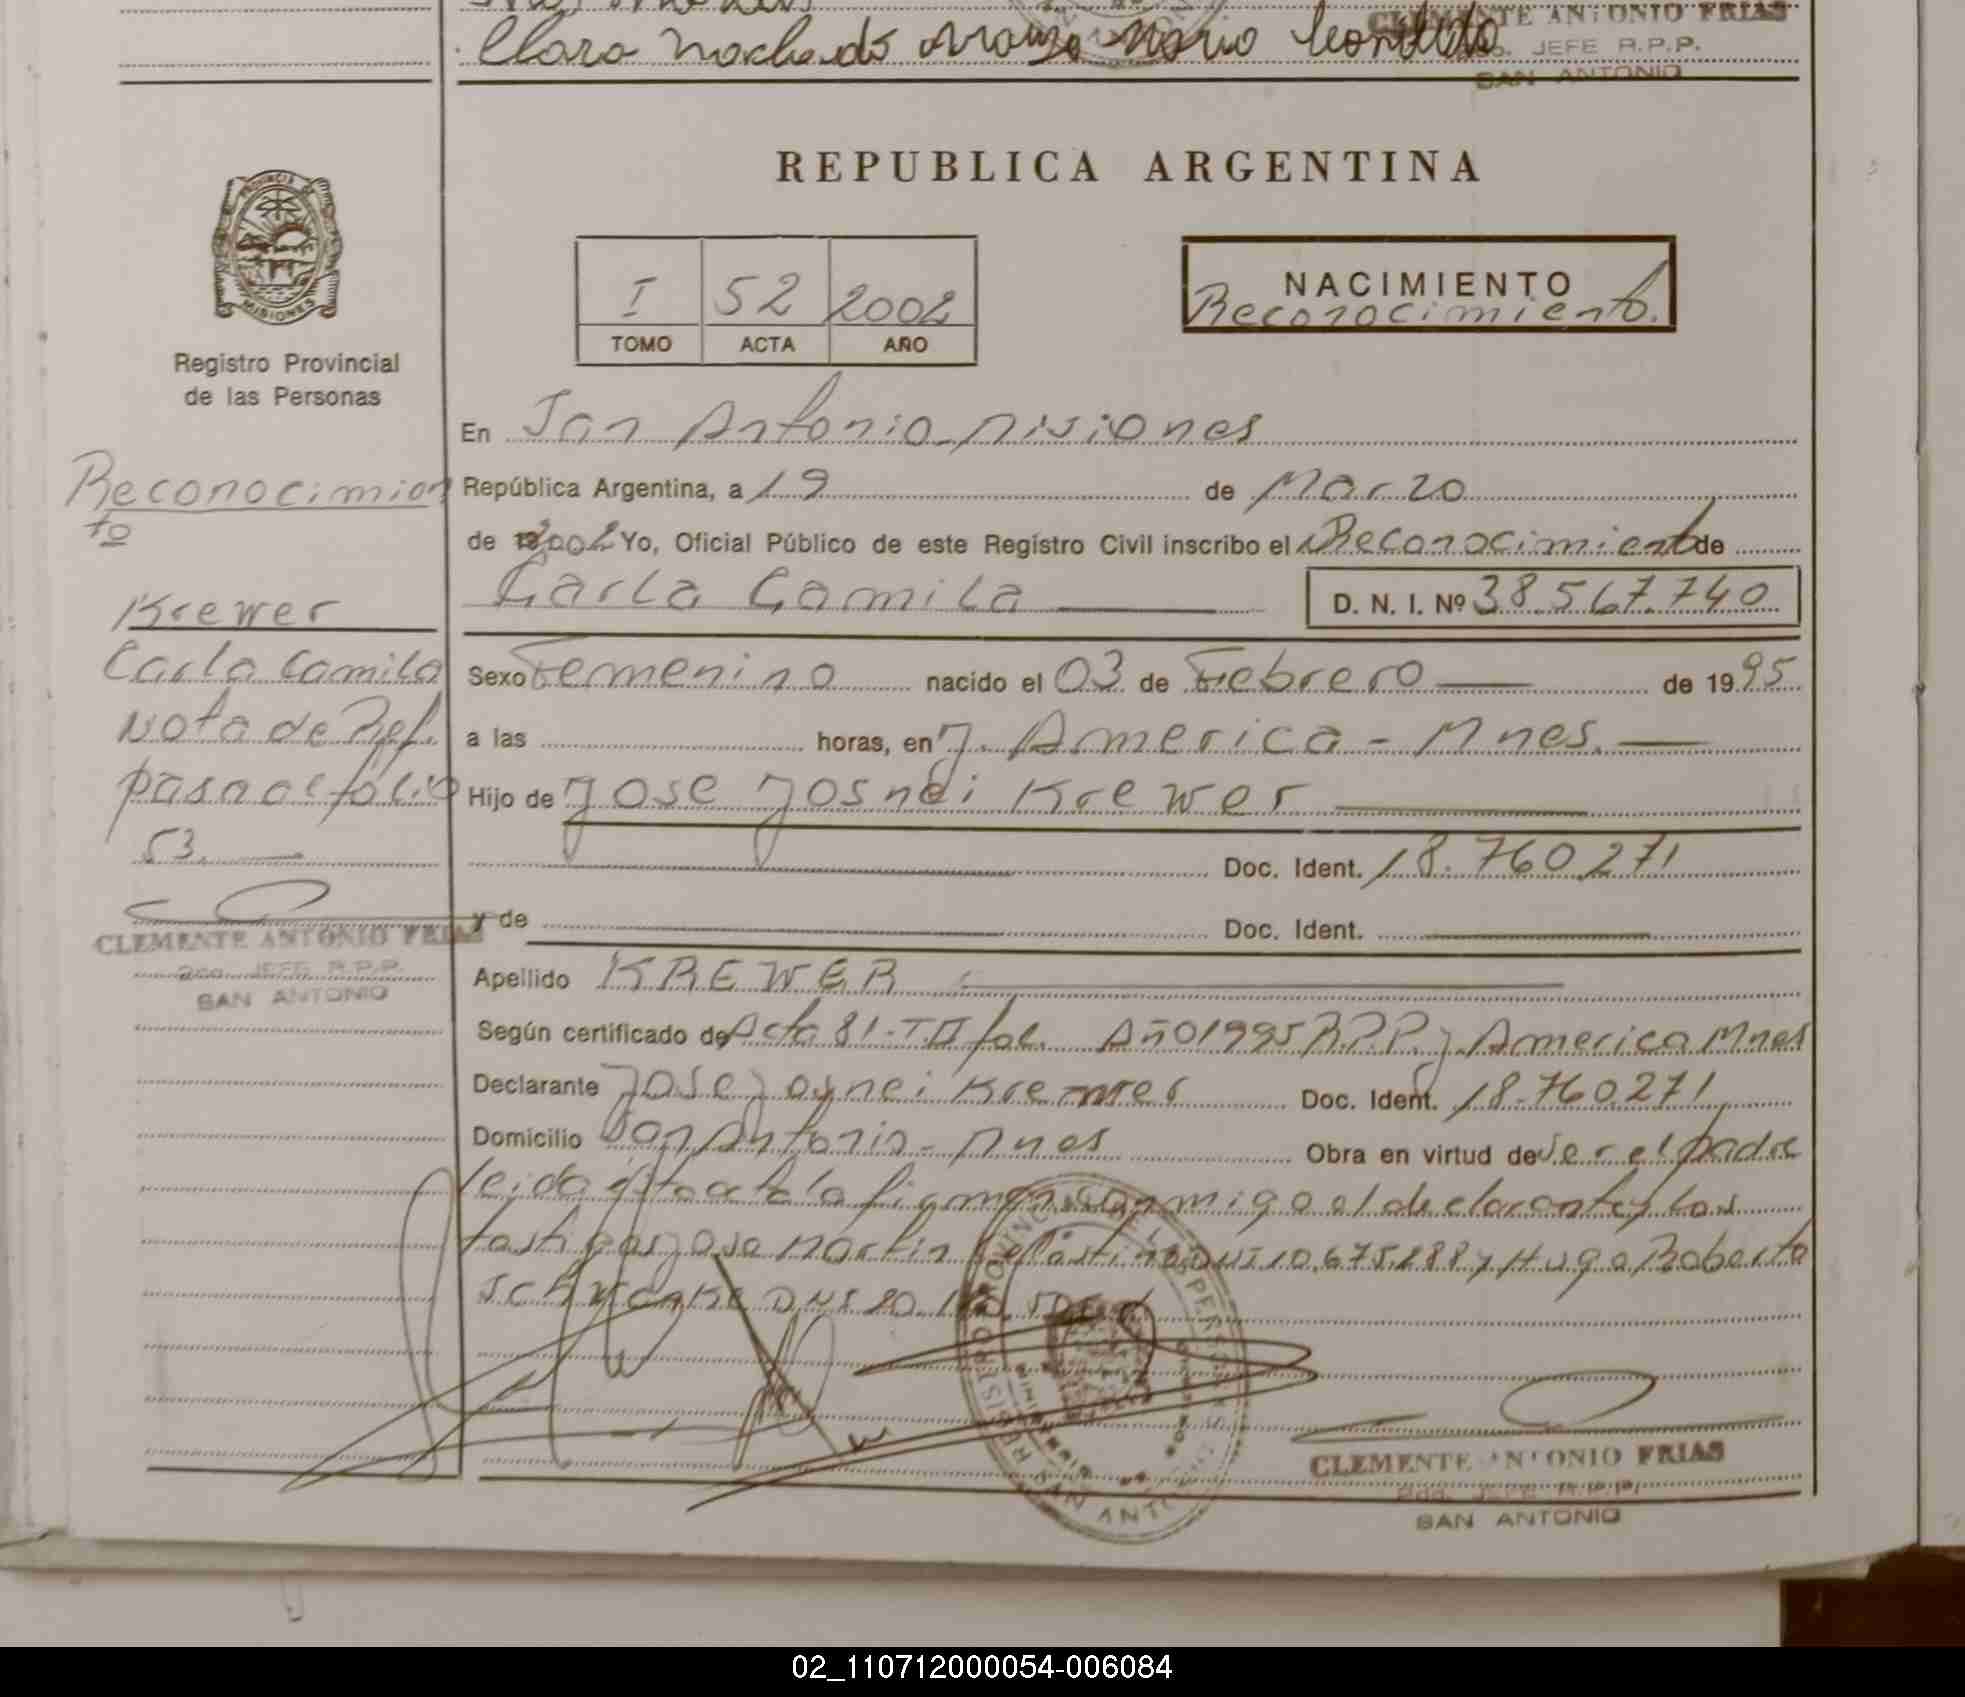 Clara Machado Mario
CLEMENTE ANTONIO FRIAS
JEFE R.P.P.
SAN ANTONIO
REPUBLICA ARGENTINA
PROVINCIA
MISIONES
Registro Provincial
de las Personas
I 52 2002
TOMO ACTA AÑO
NACIMIENTO
Reconocimiento.
En San Antonio Misiones
República Argentina, a 19 de Marzo
de 2002 Yo, Oficial Público de este Registro Civil inscribo el Reconocimiento de
Carla Camila D. N. I. Nº 38.567.740
Sexo Femenino nacido el 03 de Febrero de 1995
a las horas, en J. America - Mnes.
Hijo de Jose Josnei Krewer
Doc. Ident. 18.760.271
y de Doc. Ident.
Apellido KREWER
Según certificado de Acta 81-T II fol. Año 1995 R.P.P. J. America Mnes
Declarante Jose Josnei Krewer Doc. Ident. 18.760.271
Domicilio San Antonio - Mnes Obra en virtud de ser el padre
leida ésta acta la firman conmigo el declarante y los
testigos Jose Martin DNI 10.675.288 y Hugo Roberto
DNI 20.
Reconocimien
to
Krewer
Carla Camila
Nota de Ref.
pasa al folio
53.
CLEMENTE ANTONIO FRIAS
2do. JEFE R.P.P.
SAN ANTONIO
REGISTRO PROVINCIAL DE LAS PERSONAS
SAN ANTONIO
CLEMENTE ANTONIO FRIAS
2do. JEFE R.P.P.
SAN ANTONIO
02_110712000054-006084